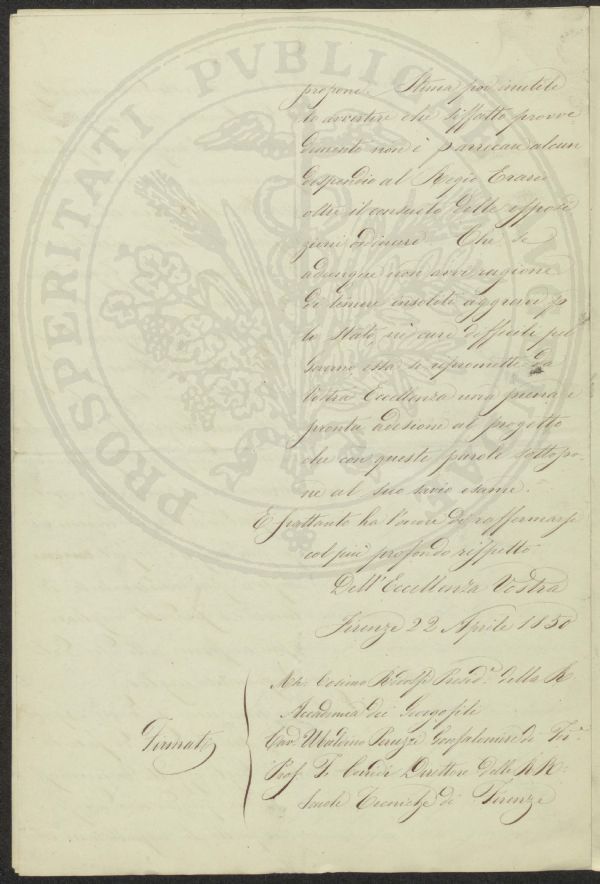 PROSPERITATI PUBLICAE
propone. Stima poi inutile
lo avvertire che siffatto provve
dimento non è p arrecare alcun
dispendio al Regio Erario
oltre il consueto delle esposi
zioni ordinarie. Che se
adunque non avvi ragione
di temere insoliti aggravi p
lo Stato, nè cure difficili pel
Governo essa si ripromette da
Vostra Eccellenza una piena e
pronta adesione al progetto
che con queste parole sottopo-
ne al suo savio esame.
E frattanto ha l'onore di raffermarsi
col più profondo rispetto
Dell'Eccellenza Vostra
Firenze 22 Aprile 1850
Firmati
Mse. Cosimo Ridolfi Presid.e della R
Accademia dei Georgofili
Cav. Ubaldino Peruzzi Gonfaloniere di Fi.e
Prof. F. Corridi Direttore delle RR.
Scuole Tecniche di Firenze